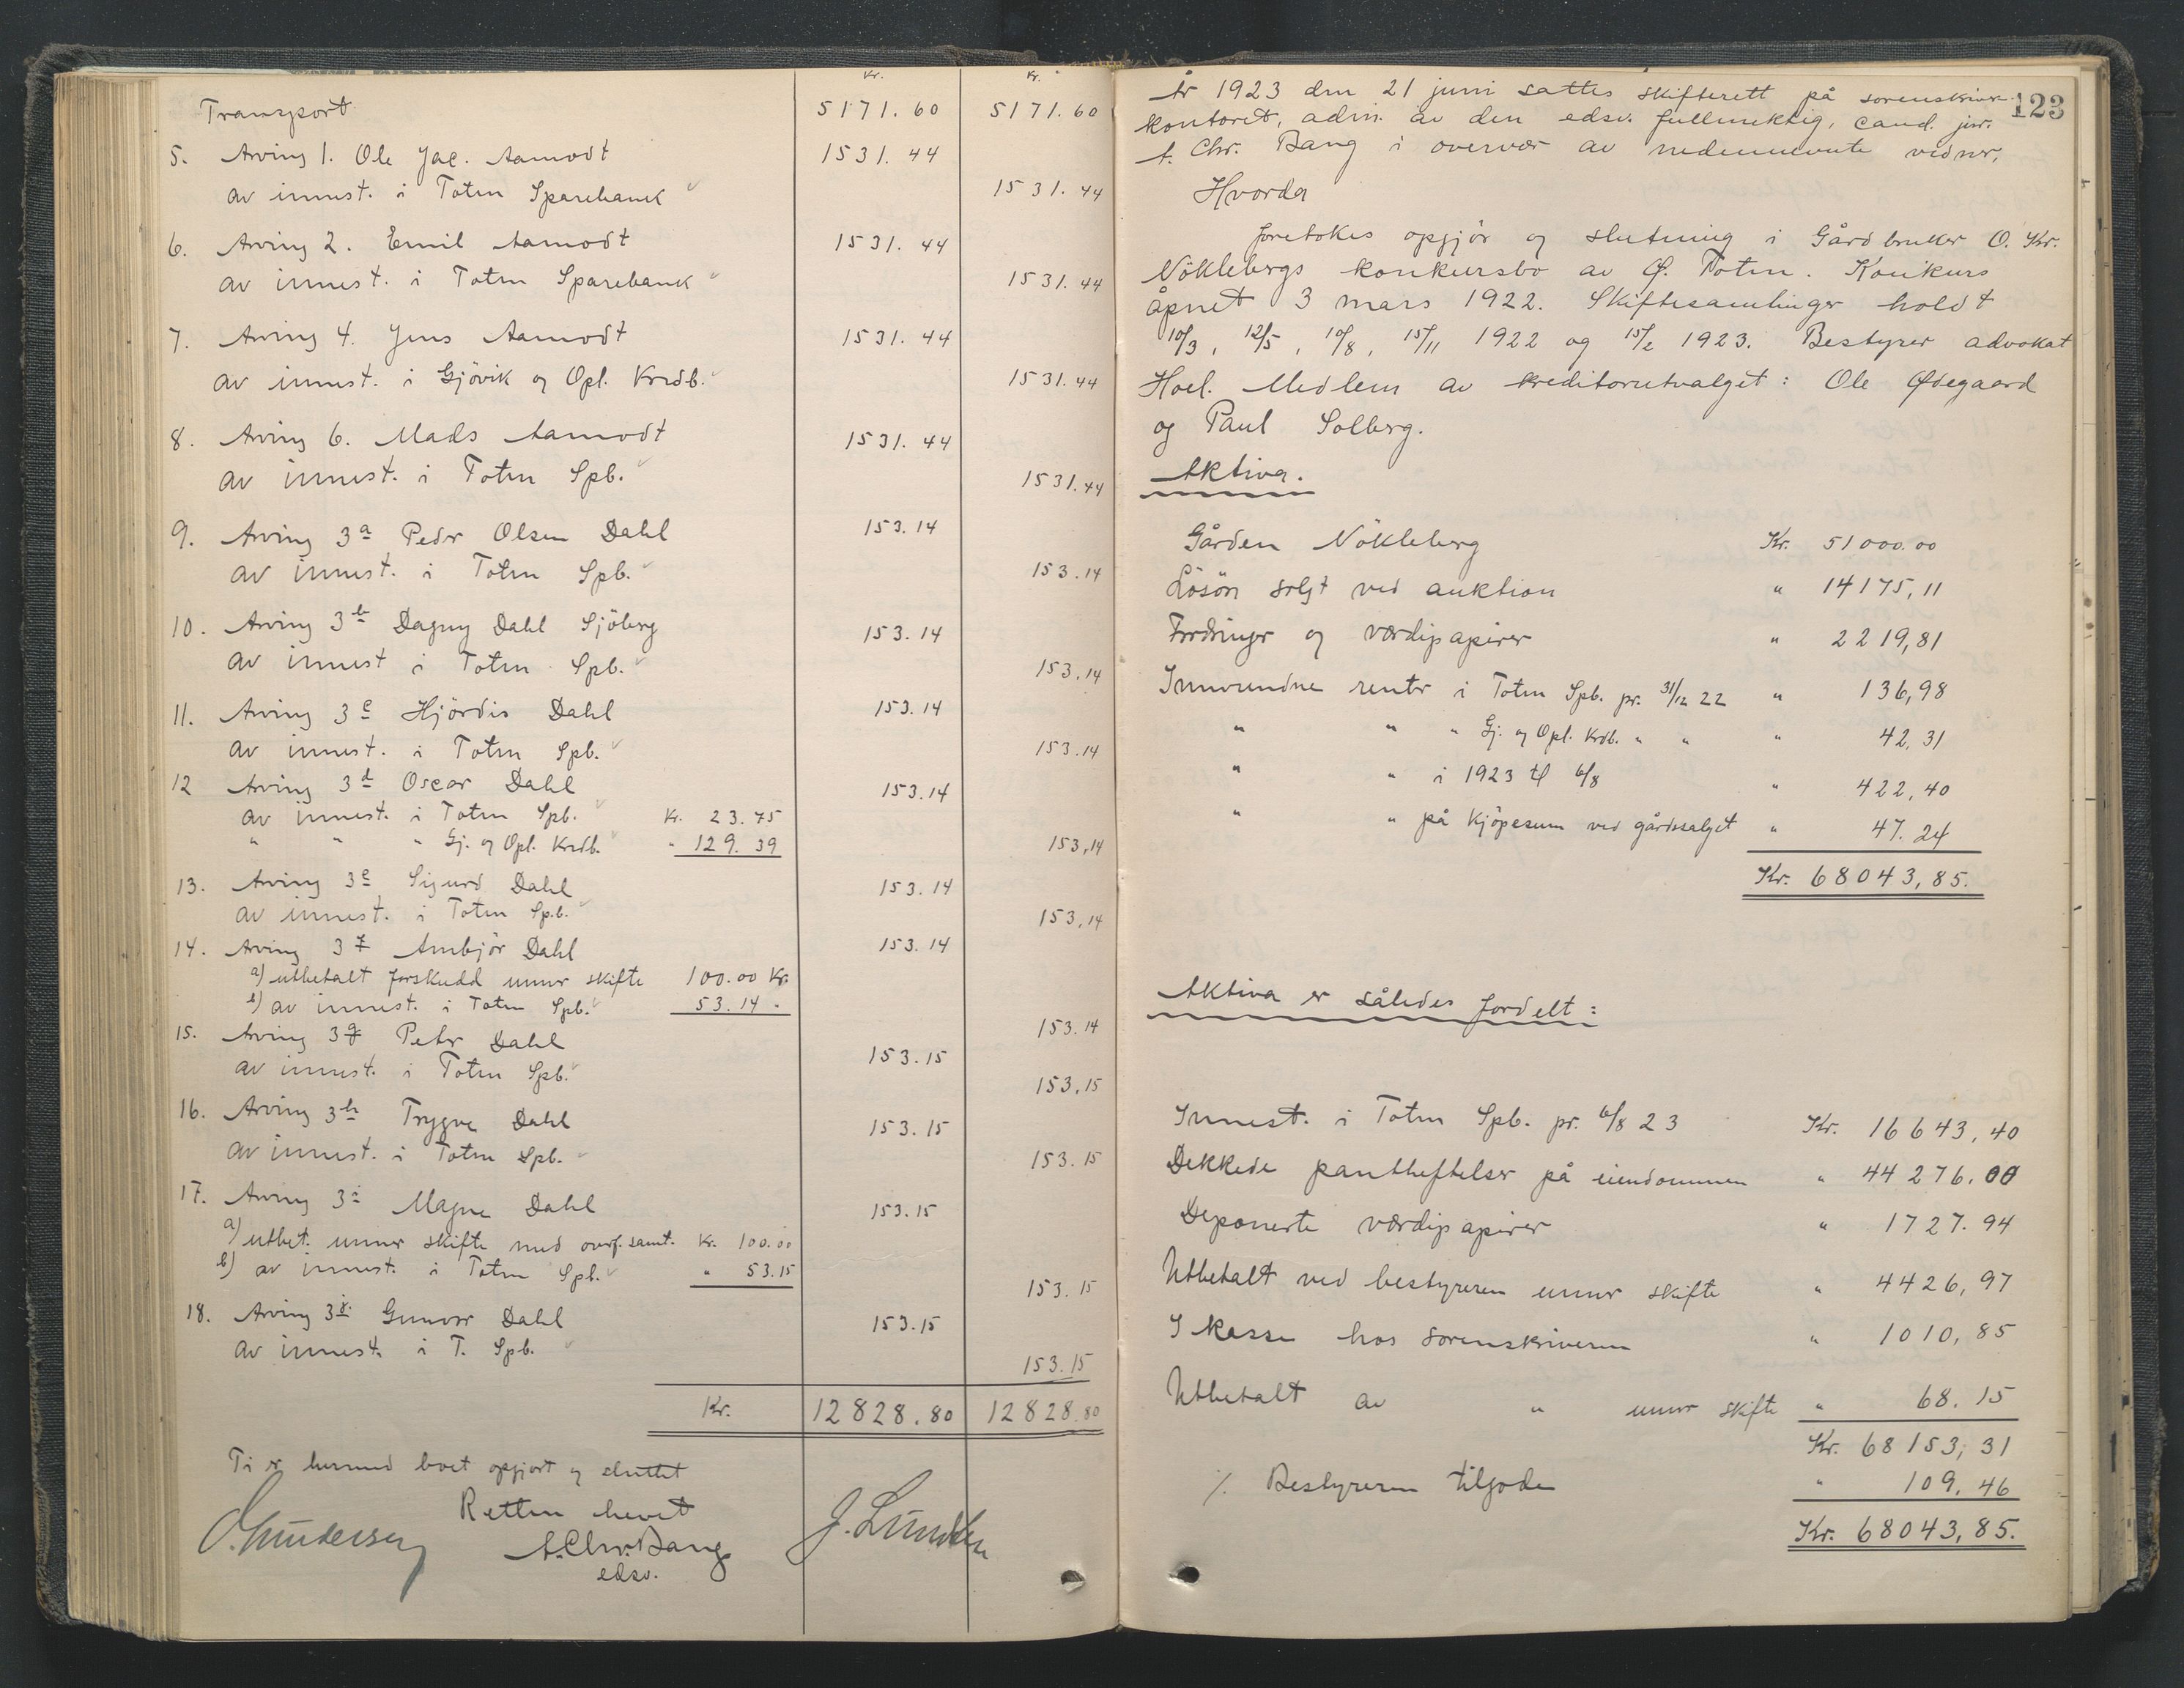 Kr. Kr.
Transport 5171.60 5171.60
5. Arving 1. Ole Jac. Aamodt 1531.44
av innest. i Toten Sparebank 1531.44
6. Arving 2. Emil Aamodt 1531.44
av innest. i Toten Sparebank 1531.44
7. Arving 4. Jens Aamodt 1531.44
av innest. i Gjövik og Opl. Kredb. 1531.44
8. Arving 6. Mads Aamodt 1531.44
av innest. i Toten Spb. 1531.44
9. Arving 3a Peder Olsen Dahl 153.14
av innest. i Toten Spb. 153.14
10. Arving 3b Dagny Dahl Sjöberg 153.14
av innest i Toten Spb. 153.14
11. Arving 3c Hjördis Dahl 153.14
av innest. i Toten Spb. 153.14
12 Arving 3d Oscar Dahl 153.14
av innest. i Toten Spb. Kr. 23.75
" " " Gj. og Opl. Kredb. " 129.39 153,14
13. Arving 3e Sigurd Dahl 153.14
av innest. i Toten Spb. 153,14
14. Arving 3f Ambjör Dahl 153.14
a) utbetalt forskudd under skifte 100.00 Kr.
b) av innest. i Toten Spb. 53.14 " 153.14
15. Arving 3g Peter Dahl 153.15
av innest. i Toten Spb. 153,15
16. Arving 3h Trygve Dahl 153.15
av innest. i Toten Spb. 153.15
17. Arving 3i Magne Dahl 153.15
a) utbet. under skifte med overf. samt. Kr. 100.00
b) av innest. i Toten Spb. " 53.15 153.15
18. Arving 3j Gunvor Dahl 153.15
av innest. i T. Spb. 153.15
Kr. 12828.80 12828.80
Ti er hermed boet opgjort og sluttet
Retten hevet
O. Gundersen A. Chr. Bang J. Lunden
edsv.
123
År 1923 den 21 juni sattes skifterett på sorenskriver
kontoret, adm. av den edsv. fullmektig, cand. jur.
A. Chr. Bang i overvær av nedennevnte vidner,
Hvorda
foretokes opgjör og slutning i Gårdbruker O. Kr.
Nöklebergs konkursbo av Ø. Toten. Konkurs
åpnet 3 mars 1922. Skiftesamlinger holdt
10/3, 12/5, 10/8, 15/11 1922 og 15/2 1923. Bestyrer advokat
Hoel. Medlem av kreditorutvalget: Ole Ødegaard
og Paul Solberg.
Aktiva.
Gården Nökleberg Kr. 51000.00
Lösöre solgt ved auktion " 14175,11
Fordringer og værdipapirer " 2219,81
Innvundne renter i Toten Spb. pr. 31/12 22 " 136,98
" " " Gj. og Opl. Krdb. " " " 42,31
" " i 1923 til 6/8 " 422,40
" " på kjöpesum ved gårdssalget " 47.24
Kr. 68043,85.
Aktiva er således fordelt:
Innest. i Toten Spb. pr. 6/8 23 Kr. 16643,40
Dekkede pantheftelser på eiendommen " 44276.00
Deponerte værdipapirer " 1727.94
Utbetalt ved bestyreren under skifte " 4426,97
I kasse hos sorenskriveren " 1010,85
Utbetalt av " under skifte " 68.15
Kr. 68153,31
% Bestyreren tilgode " 109.46
Kr. 68043,85.